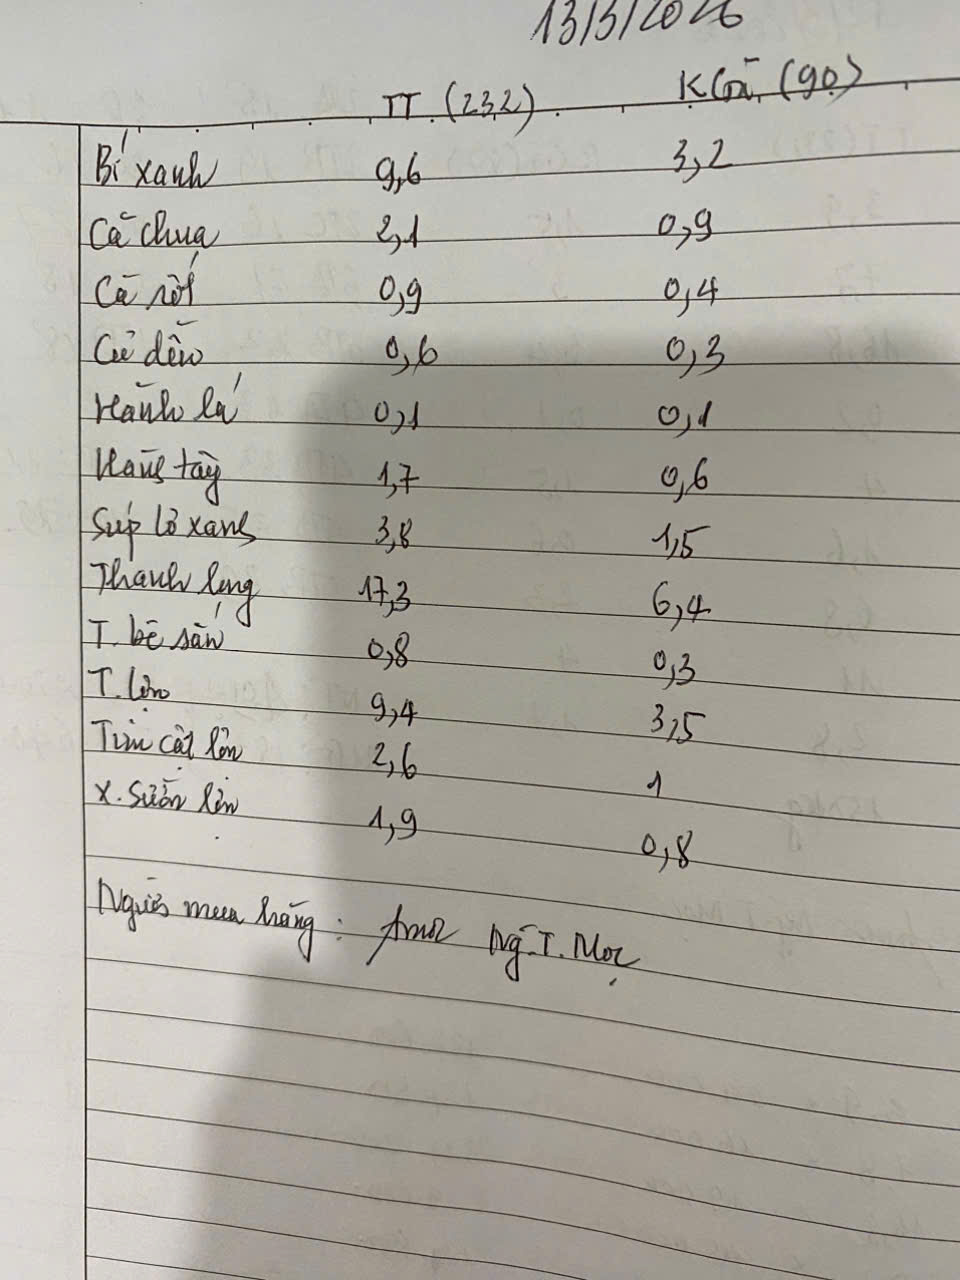 13/3/2026
TT (232) K Cói (90)
Bí xanh 9,6 3,2
Cà chua 2,1 0,9
Cà rốt 0,9 0,4
Củ dền 0,6 0,3
Hành lá 0,1 0,1
Hành tây 1,7 0,6
Súp lơ xanh 3,8 1,5
Thanh long 17,3 6,4
T. bê sấn 0,8 0,3
T. lợn 9,4 3,5
Tim cật lợn 2,6 1
X. Sườn lợn 1,9 0,8
Người mua hàng: Ng.T. Mọc